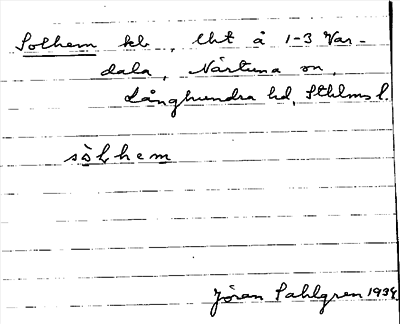 Solhem kb, lht å 1-3 Var-
dala, Närtuna sn,
Långhundra hd, Sthlms l.
sòlhem
Jöran Sahlgren 1934.